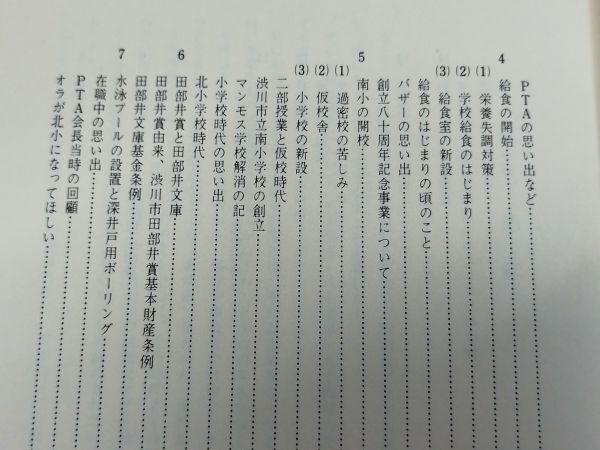 PTAの思い出など
4 給食の開始
(1) 栄養失調対策
(2) 学校給食のはじまり
(3) 給食室の新設
給食のはじまりの頃のこと
バザーの思い出
創立八十周年記念事業について
5 南小の開校
(1) 過密校の苦しみ
(2) 仮校舎
(3) 小学校の新設
二部授業と仮校時代
渋川市立南小学校の創立
マンモス学校解消の記
小学校時代の思い出
北小学校時代
6 田部井賞と田部井文庫
田部井賞由来、渋川市田部井賞基本財産条例
田部井文庫基金条例
7 水泳プールの設置と深井戸用ボーリング
在職中の思い出
PTA会長当時の回顧
オラが北小になってほしい